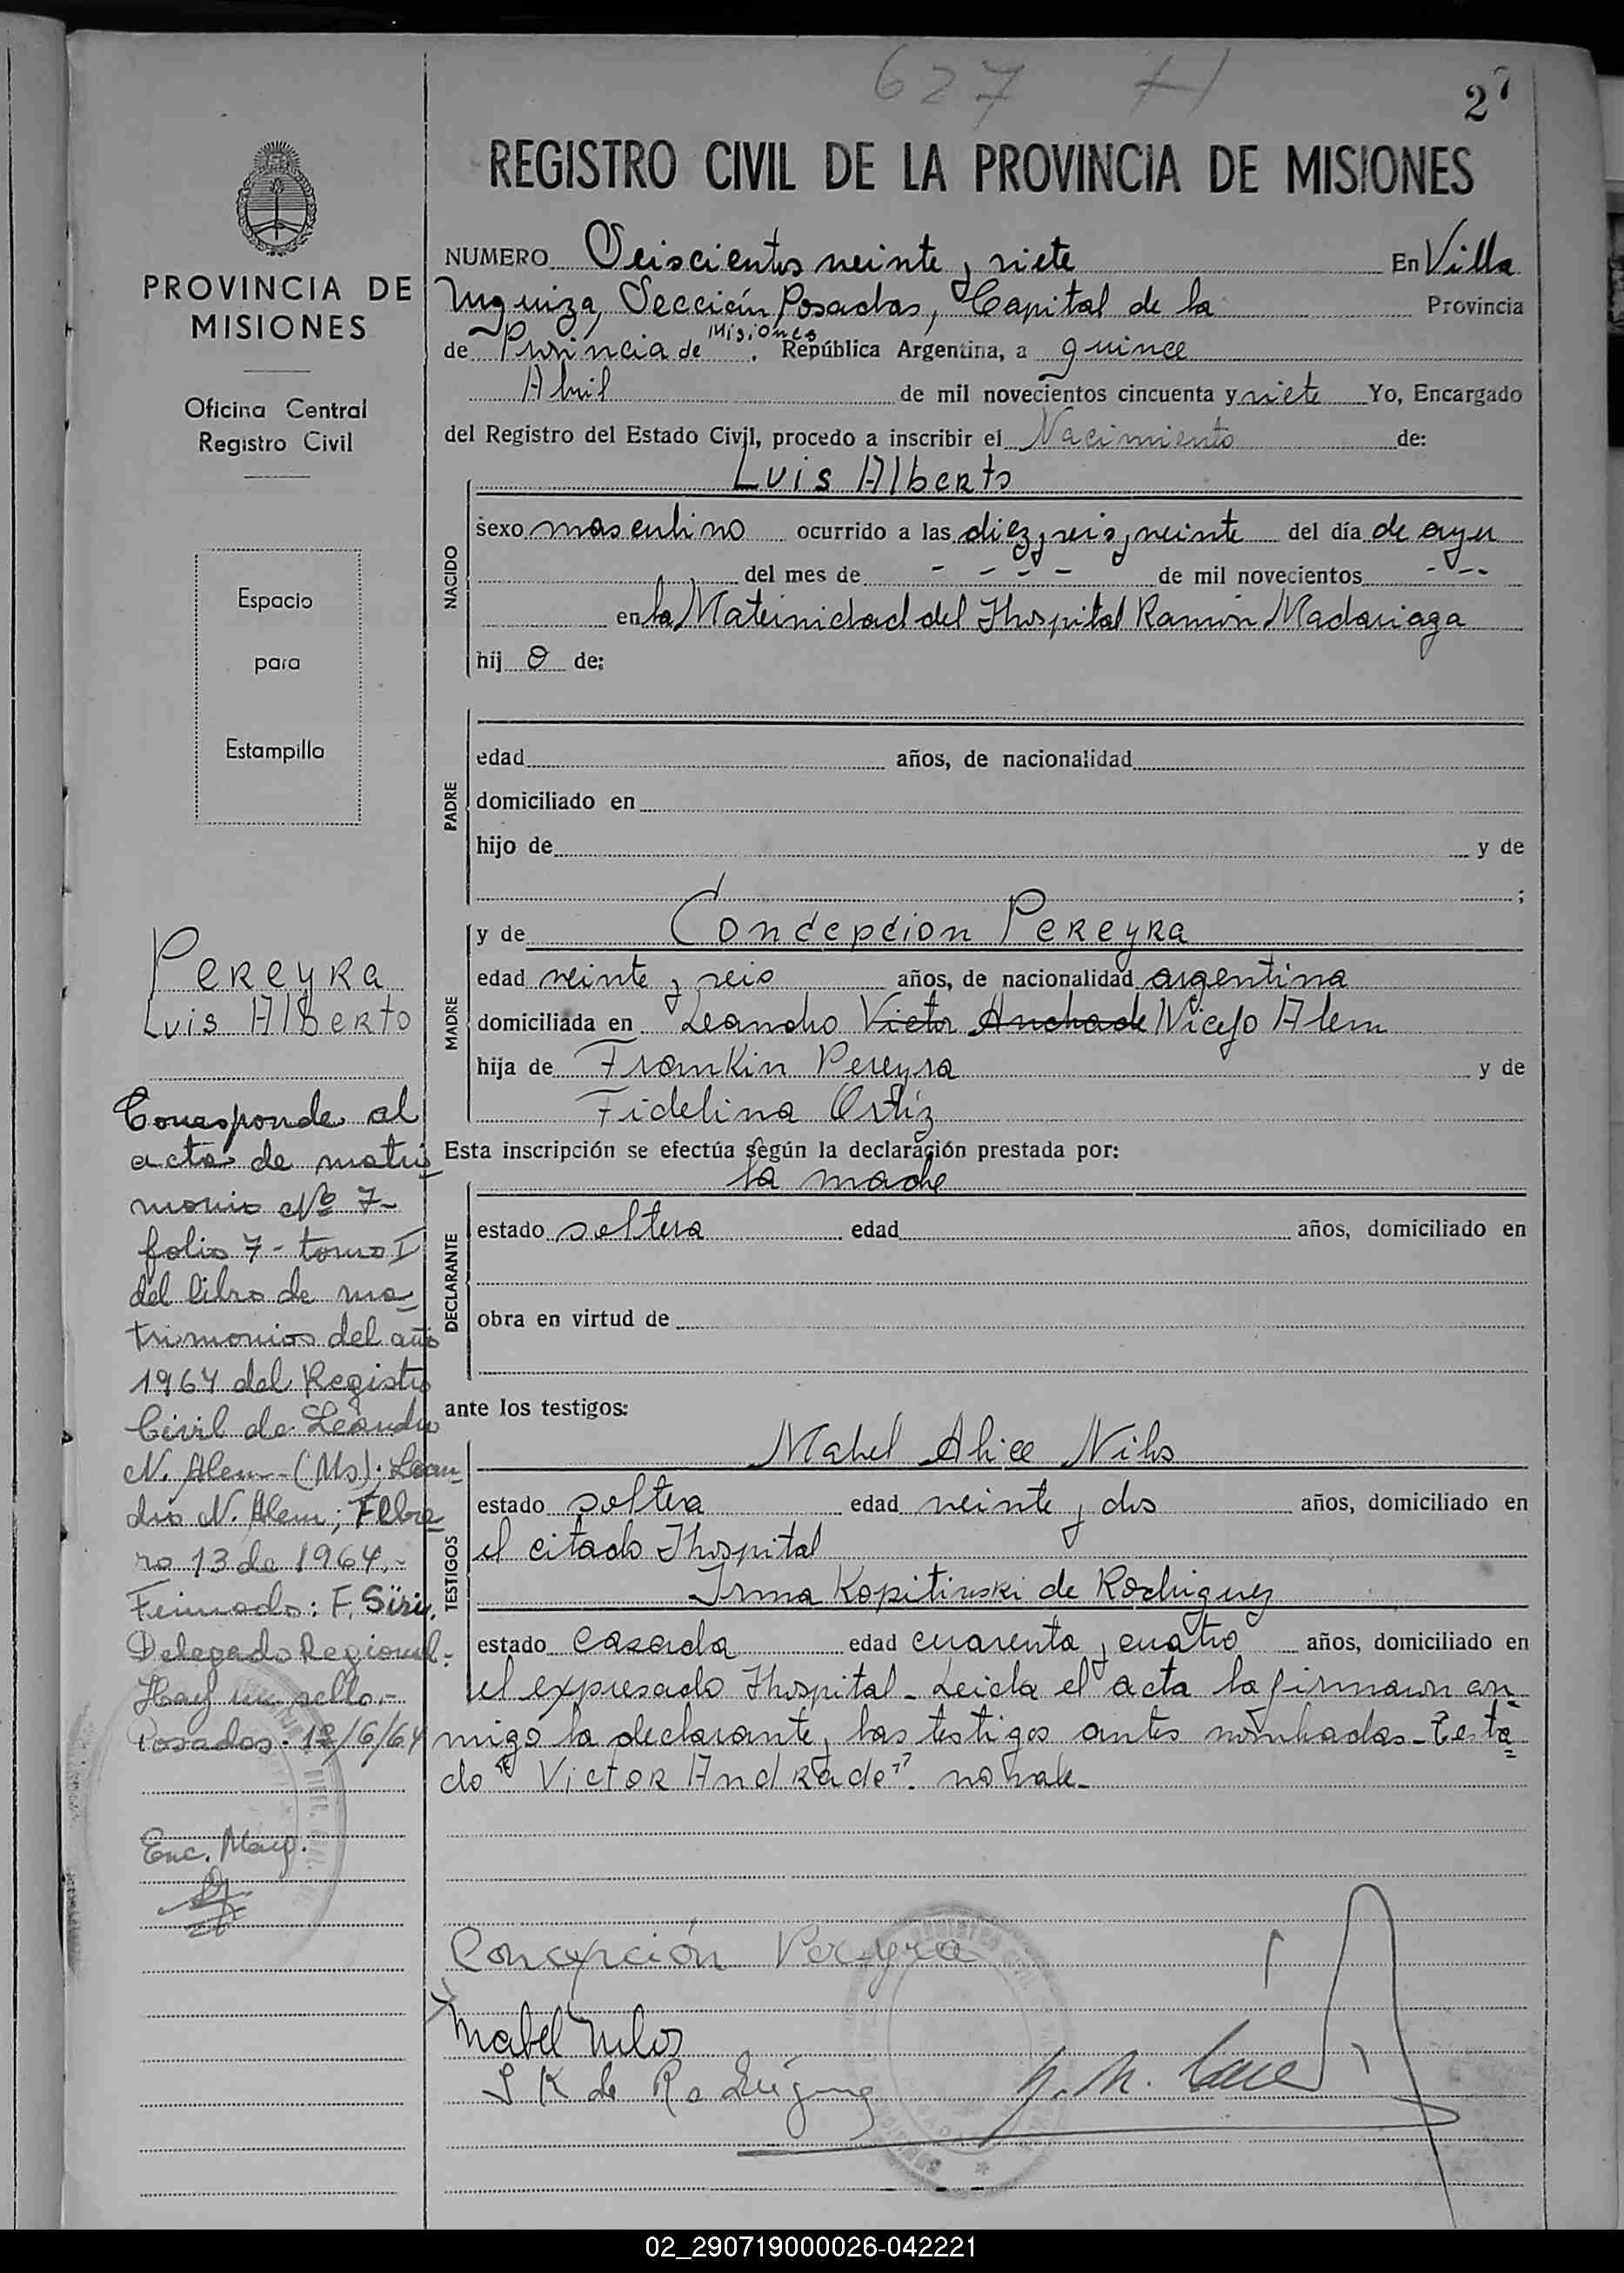 627 H
27
REGISTRO CIVIL DE LA PROVINCIA DE MISIONES
PROVINCIA DE
MISIONES
Oficina Central
Registro Civil
Espacio
para
Estampilla
Pereyra
Luis Alberto
Corresponde al
acta de matri
monio Nº 7-
folio 7 - tomo I
del libro de ma-
trimonios del año
1964 del Registro
Civil de Leandro
N. Alem - (Ms); Lean-
dro N. Alem; Febre-
ro 13 de 1964.-
Feimado: F. Siri.
Delegado Regional.-
Hay un sello.-
Posadas. 12/6/64
Enc. Mayo.
NUMERO Seiscientos veinte y siete En Villa
Urquiza, Sección Posadas, Capital de la Provincia
de Provincia de Misiones. República Argentina, a quince
Abril de mil novecientos cincuenta y siete Yo, Encargado
del Registro del Estado Civil, procedo a inscribir el Nacimiento de:
NACIDO
Luis Alberto
sexo masculino ocurrido a las diez y seis y veinte del día de ayer
del mes de - - - - de mil novecientos - - -
en la Maternidad del Hospital Ramón Madariaga
hij o de:
PADRE
edad años, de nacionalidad
domiciliado en
hijo de y de
;
MADRE
y de Concepcion Pereyra
edad veinte y seis años, de nacionalidad argentina
domiciliada en Leandro Victor Andrade Nicefo Alem
hija de Frankin Pereyra y de
Fidelina Ortíz
Esta inscripción se efectúa según la declaración prestada por:
DECLARANTE
la madre
estado soltera edad años, domiciliado en
obra en virtud de
ante los testigos:
TESTIGOS
Mabel Alice Nilos
estado soltera edad veinte y dos años, domiciliado en
el citado Hospital
Irma Kopitinski de Rodriguez
estado casada edad cuarenta y cuatro años, domiciliado en
el expresado Hospital - Leida el acta la firmaron con
migo la declarante, las testigos antes nombradas - Testa
do "Victor Andrade". no vale -
Concepción Pereyra
Mabel Nilos
I K de Rodríguez
02_290719000026-042221